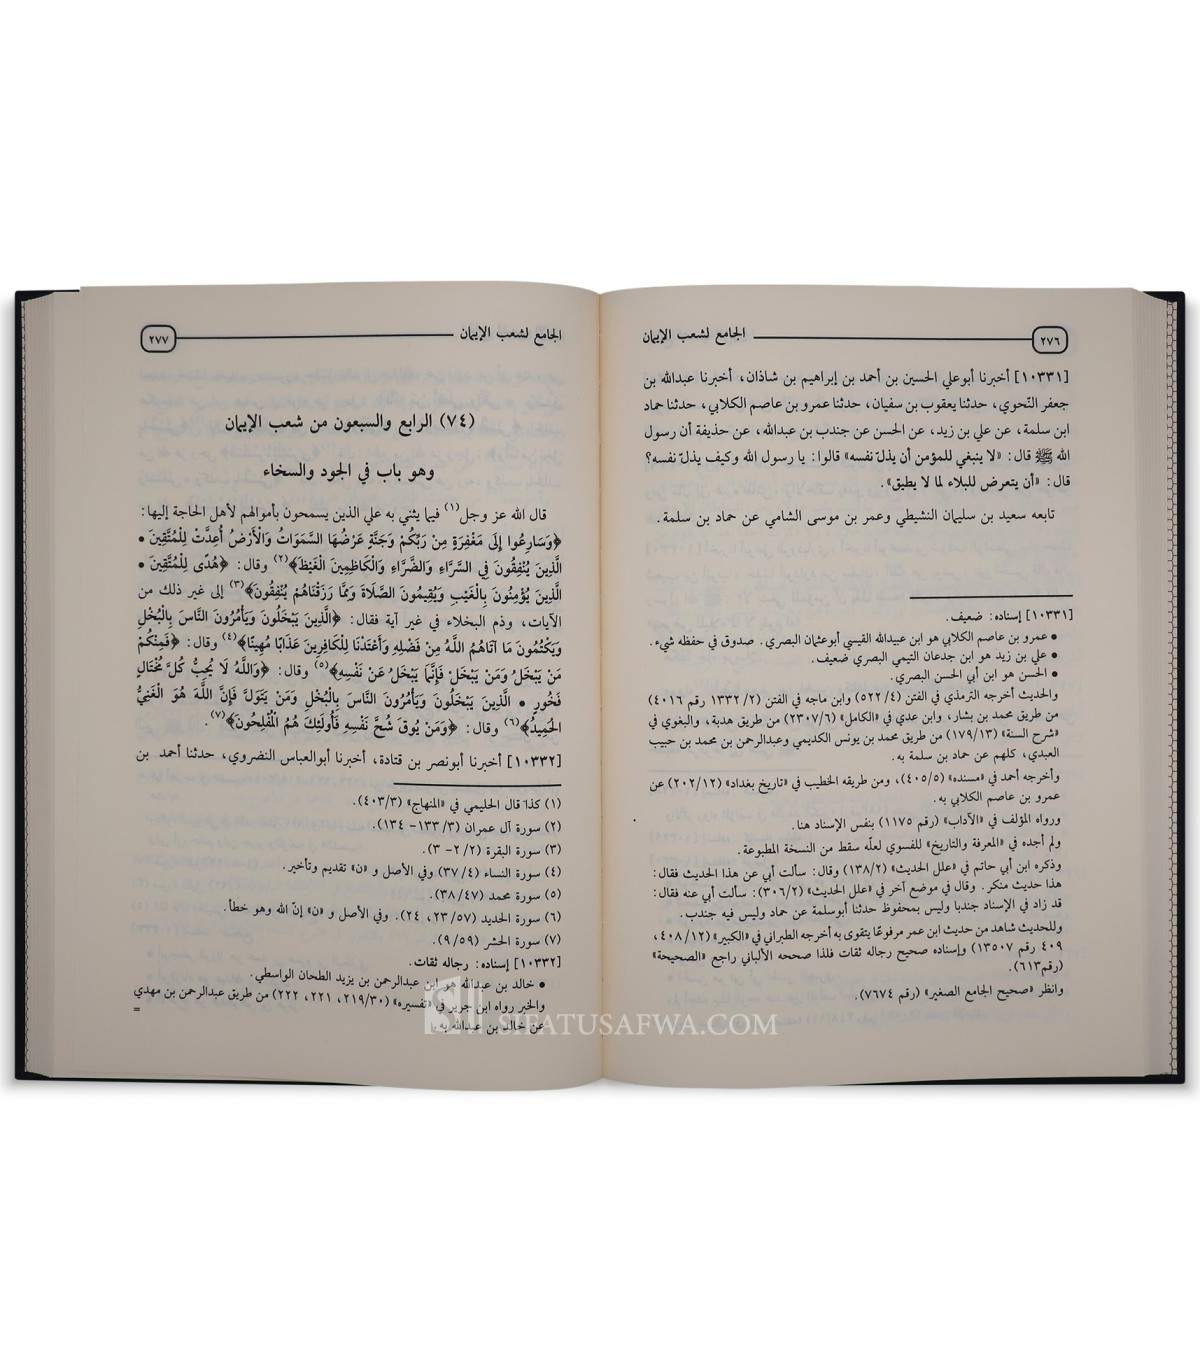 ٢٧٦ الجامع لشعب الإيمان
[١٠٣٣١] أخبرنا أبوعلي الحسين بن أحمد بن إبراهيم بن شاذان، أخبرنا عبدالله بن
جعفر النّحوي، حدثنا يعقوب بن سفيان، حدثنا عمرو بن عاصم الكلابي، حدثنا حماد
ابن سلمة، عن علي بن زيد، عن الحسن عن جندب بن عبدالله، عن حذيفة أن رسول
الله ﷺ قال: «لا ينبغي للمؤمن أن يذلّ نفسه» قالوا: يا رسول الله وكيف يذلّ نفسه؟
قال: «أن يتعرض للبلاء لما لا يطيق».
تابعه سعيد بن سليمان النشيطي وعمر بن موسى الشامي عن حماد بن سلمة.
[١٠٣٣١] إسناده: ضعيف.
• عمرو بن عاصم الكلابي هو ابن عبيدالله القيسي أبوعثمان البصري. صدوق في حفظه شيء.
• علي بن زيد هو ابن جدعان التيمي البصري ضعيف.
• الحسن هو ابن أبي الحسن البصري.
والحديث أخرجه الترمذي في الفتن (٤/ ٥٢٢) وابن ماجه في الفتن (٢/ ١٣٣٢ رقم ٤٠١٦)
من طريق محمد بن بشار، وابن عدي في «الكامل» (٢٣٠٧/٦) من طريق هدبة، والبغوي في
«شرح السنة» (١٧٩/١٣) من طريق محمد بن يونس الكديمي وعبدالرحمن بن محمد بن حبيب
العبدي، كلهم عن حماد بن سلمة به.
وأخرجه أحمد في «مسنده» (٤٠٥/٥)، ومن طريقه الخطيب في «تاريخ بغداد» (٢٠٢/١٢) عن
عمرو بن عاصم الكلابي به.
ورواه المؤلف في «الآداب» (رقم ١١٧٥) بنفس الإسناد هنا.
ولم أجده في «المعرفة والتاريخ» للفسوي لعلّه سقط من النسخة المطبوعة.
وذكره ابن أبي حاتم في «علل الحديث» (١٣٨/٢) وقال: سألت أبي عن هذا الحديث فقال:
هذا حديث منكر. وقال في موضع آخر في «علل الحديث» (٣٠٦/٢): سألت أبي عنه فقال:
قد زاد في الإسناد جندبا وليس بمحفوظ حدثنا أبوسلمة عن حماد وليس فيه جندب.
وللحديث شاهد من حديث ابن عمر مرفوعًا يتقوى به أخرجه الطبراني في «الكبير» (١٢/ ٤٠٨،
٤٠٩ رقم ١٣٥٠٧) وإسناده صحيح رجاله ثقات فلذا صححه الألباني راجع «الصحيحة»
(رقم٦١٣).
وانظر «صحيح الجامع الصغير» (رقم ٧٦٧٤).
الجامع لشعب الإيمان ٢٧٧
(٧٤) الرابع والسبعون من شعب الإيمان
وهو باب في الجود والسخاء
قال الله عز وجل(١) فيما يثني به علي الذين يسمحون بأموالهم لأهل الحاجة إليها:
﴿وَسَارِعُوا إِلَى مَغْفِرَةٍ مِنْ رَبِّكُمْ وَجَنَّةٍ عَرْضُهَا السَّمَوَاتُ وَالْأَرْضُ أُعِدَّتْ لِلْمُتَّقِينَ •
الَّذِينَ يُنْفِقُونَ فِي السَّرَّاءِ وَالضَّرَّاءِ وَالْكَاظِمِينَ الْغَيْظَ﴾(٢) وقال: ﴿هُدًى لِلْمُتَّقِينَ •
الَّذِينَ يُؤْمِنُونَ بِالْغَيْبِ وَيُقِيمُونَ الصَّلَاةَ وَمِمَّا رَزَقْنَاهُمْ يُنْفِقُونَ﴾(٣) إلى غير ذلك من
الآيات، وذم البخلاء في غير آية فقال: ﴿الَّذِينَ يَبْخَلُونَ وَيَأْمُرُونَ النَّاسَ بِالْبُخْلِ
وَيَكْتُمُونَ مَا آتَاهُمُ اللَّهُ مِنْ فَضْلِهِ وَأَعْتَدْنَا لِلْكَافِرِينَ عَذَابًا مُهِينًا﴾(٤) وقال: ﴿فَمِنْكُمْ
مَنْ يَبْخَلُ وَمَنْ يَبْخَلْ فَإِنَّمَا يَبْخَلُ عَنْ نَفْسِهِ﴾(٥) وقال: ﴿وَاللَّهُ لَا يُحِبُّ كُلَّ مُخْتَالٍ
فَخُورٍ • الَّذِينَ يَبْخَلُونَ وَيَأْمُرُونَ النَّاسَ بِالْبُخْلِ وَمَنْ يَتَوَلَّ فَإِنَّ اللَّهَ هُوَ الْغَنِيُّ
الْحَمِيدُ﴾(٦) وقال: ﴿وَمَنْ يُوقَ شُحَّ نَفْسِهِ فَأُولَئِكَ هُمُ الْمُفْلِحُونَ﴾(٧).
[١٠٣٣٢] أخبرنا أبونصر بن قتادة، أخبرنا أبوالعباس النضروي، حدثنا أحمد بن
(١) كذا قال الحليمي في «المنهاج» (٤٠٣/٣).
(٢) سورة آل عمران (٣/ ١٣٣- ١٣٤).
(٣) سورة البقرة (٢/ ٢- ٣).
(٤) سورة النساء (٣٧/٤) وفي الأصل و «ن» تقديم وتأخير.
(٥) سورة محمد (٣٨/٤٧).
(٦) سورة الحديد (٢٣/٥٧، ٢٤). وفي الأصل و «ن» إنّ الله وهو خطأ.
(٧) سورة الحشر (٩/٥٩).
[١٠٣٣٢] إسناده: رجاله ثقات.
• خالد بن عبدالله هو ابن عبدالرحمن بن يزيد الطحان الواسطي.
والخبر رواه ابن جرير في «تفسيره» (٢١٩/٣٠، ٢٢١، ٢٢٢) من طريق عبدالرحمن بن مهدي
عن خالد بن عبدالله به. =
SIFATUSAFWA.COM